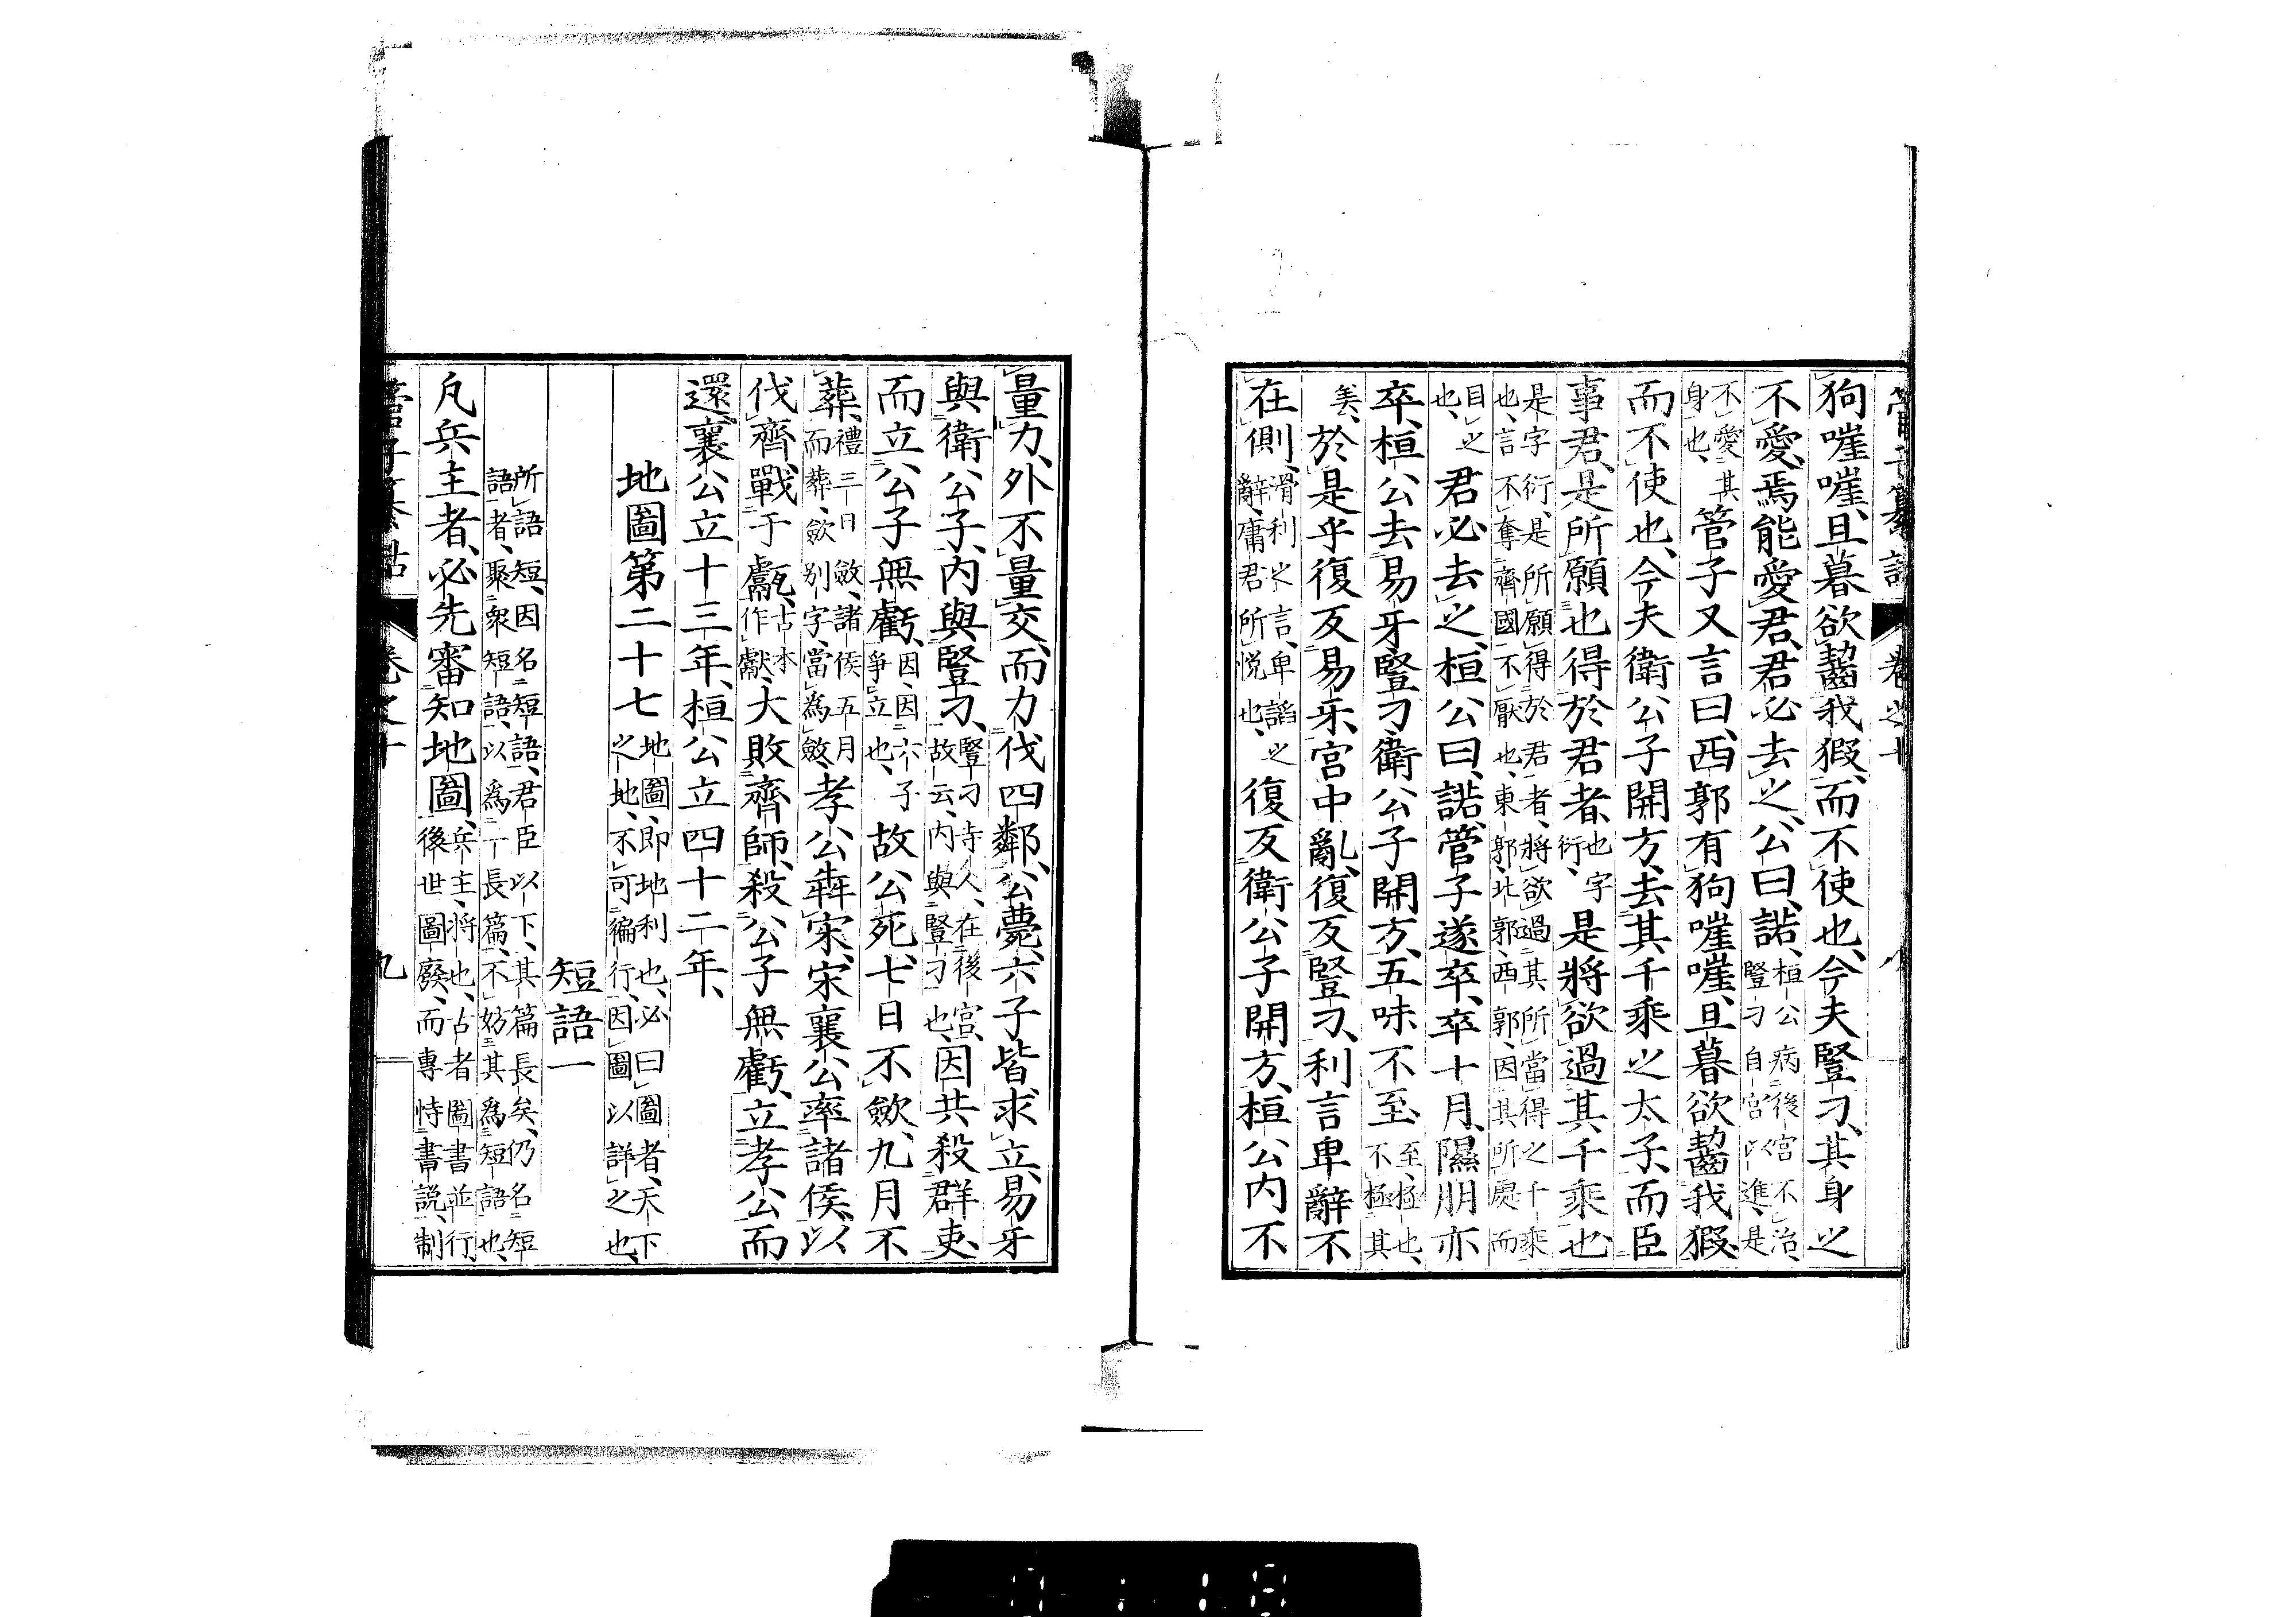 管子纂詁 卷之十 八
狗嘊嘊、旦暮欲齧我猳、而不使也、今夫豎刁、其身之
不愛、焉能愛君、君必去之、公曰、諾、桓公病後宮不治、豎刁自宮以進、是
不愛其身也、管子又言曰、西郭有狗嘊嘊、旦暮欲齧我猳、
而不使也、今夫衛公子開方、去其千乘之太子、而臣
事君、是所願也得於君者、也字衍、是將欲過其千乘也
是字衍、是所願得於君者、將欲過其所當得之千乘也、言不奪齊國不厭也、東郭、北郭、西郭、因其所處而
目之也、君必去之、桓公曰、諾、管子遂卒、卒十月、隰朋亦
卒、桓公去易牙豎刁衛公子開方、五味不至、至、極也、不極其
美、於是乎復反易牙、宮中亂、復反豎刁、利言卑辭不
在側、滑利之言、卑諂之辭、庸君所悅也、復反衛公子開方、桓公內不
量力、外不量交、而力伐四鄰、公薨、六子皆求立、易牙
與衛公子、內與豎刁、豎刁寺人、在後宮、故云、內與豎刁也、因共殺群吏、
而立公子無虧、因、因六子爭立也、故公死、七日不歛、九月不
葬、禮三日斂、諸侯五月而葬、歛別字、當為斂、孝公犇宋、宋襄公率諸侯、以
伐齊、戰于甗、古本作獻、大敗齊師、殺公子無虧、立孝公而
還、襄公立十三年、桓公立四十二年、
地圖第二十七 地圖、即地利也、必曰圖者、天下之地、不可徧行、因圖以詳之也、
短語一
所語短、因名短語、君臣以下、其篇長矣、仍名短語者、聚衆短語、以為一長篇、不妨其為短語也、
凡兵主者、必先審知地圖、兵主、將也、古者圖書並行、後世圖廢、而專恃書說、制
管子纂詁 卷之十 九